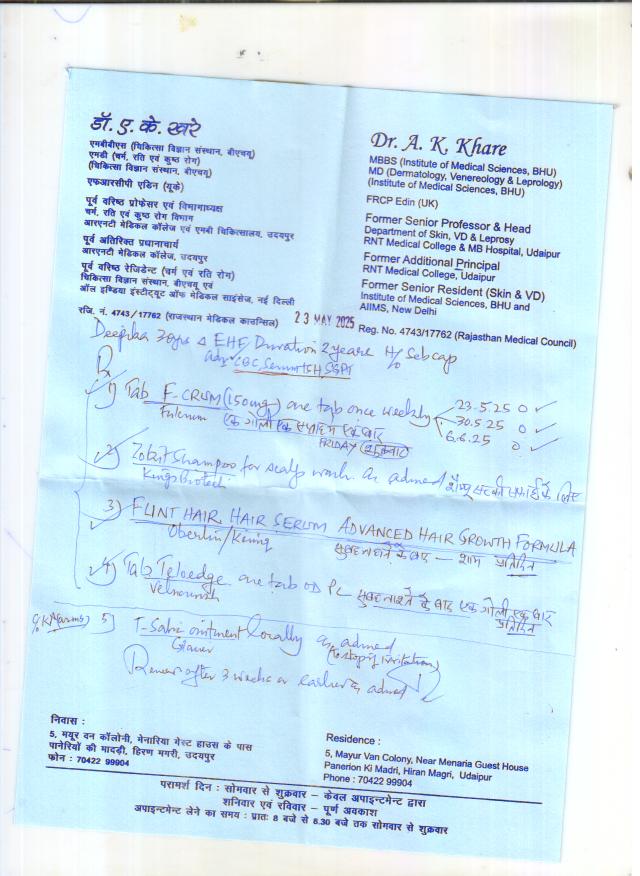 डॉ. ए. के. खरे
एमबीबीएस (चिकित्सा विज्ञान संस्थान, बीएचयू)
एमडी (चर्म, रति एवं कुष्ठ रोग)
(चिकित्सा विज्ञान संस्थान, बीएचयू)
एफआरसीपी एडिन (यूके)
पूर्व वरिष्ठ प्रोफेसर एवं विभागाध्यक्ष
चर्म, रति एवं कुष्ठ रोग विभाग
आरएनटी मेडिकल कॉलेज एवं एमबी चिकित्सालय, उदयपुर
पूर्व अतिरिक्त प्रधानाचार्य
आरएनटी मेडिकल कॉलेज, उदयपुर
पूर्व वरिष्ठ रेजिडेन्ट (चर्म एवं रति रोग)
चिकित्सा विज्ञान संस्थान, बीएचयू एवं
ऑल इण्डिया इंस्टीट्यूट ऑफ मेडिकल साइंसेज, नई दिल्ली
रजि. नं. 4743/17762 (राजस्थान मेडिकल काउन्सिल)
Dr. A. K. Khare
MBBS (Institute of Medical Sciences, BHU)
MD (Dermatology, Venereology & Leprology)
(Institute of Medical Sciences, BHU)
FRCP Edin (UK)
Former Senior Professor & Head
Department of Skin, VD & Leprosy
RNT Medical College & MB Hospital, Udaipur
Former Additional Principal
RNT Medical College, Udaipur
Former Senior Resident (Skin & VD)
Institute of Medical Sciences, BHU and
AIIMS, New Delhi
Reg. No. 4743/17762 (Rajasthan Medical Council)
23 MAY 2025
Deepika 30yrs Δ EHF Duration 2 years H/o Sebcap
adv CBC, Serum TSH, SGPT
Rx
1) Tab F-CRUM (150mg) one tab once weekly 23.5.25 0 ✓
30.5.25 0 ✓
6.6.25 0 ✓
एक गोली एक सप्ताह में एक बार
FRIDAY (शुक्रवार)
2) Shampoo for scalp wash as advised
Kings Biotech
3) FLINT HAIR HAIR SERUM ADVANCED HAIR GROWTH FORMULA
सुबह नहाने के बाद — शाम प्रतिदिन
4) Tab Teloedge one tab OD PC सुबह नाश्ते के बाद एक गोली एक बार
प्रतिदिन
5) T-Salic ointment locally as advised
(to stop if irritation)
Review after 3 weeks or earlier as advised
निवास :
5, मयूर वन कॉलोनी, मेनारिया गेस्ट हाउस के पास
पानेरियों की मादड़ी, हिरण मगरी, उदयपुर
फोन : 70422 99904
Residence :
5, Mayur Van Colony, Near Menaria Guest House
Panerion Ki Madri, Hiran Magri, Udaipur
Phone : 70422 99904
परामर्श दिन : सोमवार से शुक्रवार – केवल अपाइन्टमेन्ट द्वारा
शनिवार एवं रविवार – पूर्ण अवकाश
अपाइन्टमेन्ट लेने का समय : प्रातः 8 बजे से 8.30 बजे तक सोमवार से शुक्रवार